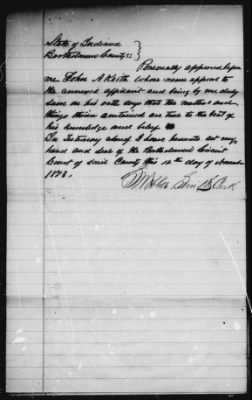 State of Indiana }
Bartholomew County } SS
Personally appeared before
me John A Keith whose name appears to
the annexed affidavit and being by me duly
sworn on his oath says that the matters and
things therein contained are true to the best of
his knowledge and belief
In Testimony whereof I have hereunto set my
hand and seal of the Bartholomew Circuit
Court of said County this 12 day of November
1878.
Clerk